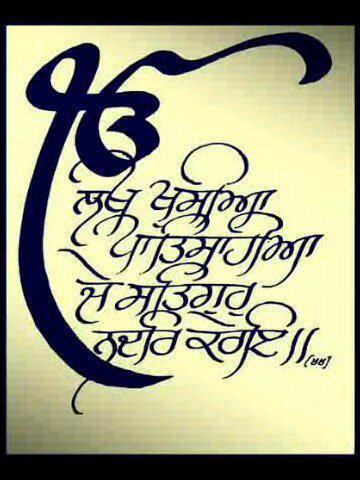 ੴ
ਲਖ ਖੁਸੀਆ
ਪਾਤਿਸਾਹੀਆ
ਜੇ ਸਤਿਗੁਰੁ
ਨਦਰਿ ਕਰੇਇ॥ (੪੪)